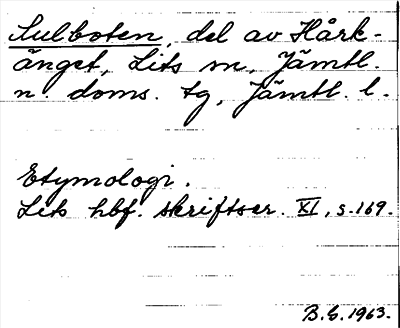 Sulboten, del av Hårk-
änget, Lits sn, Jämtl.
n. doms. tg, Jämtl. l.
Etymologi.
Lits hbf. skriftser. XI, s. 169.
B.E. 1963.